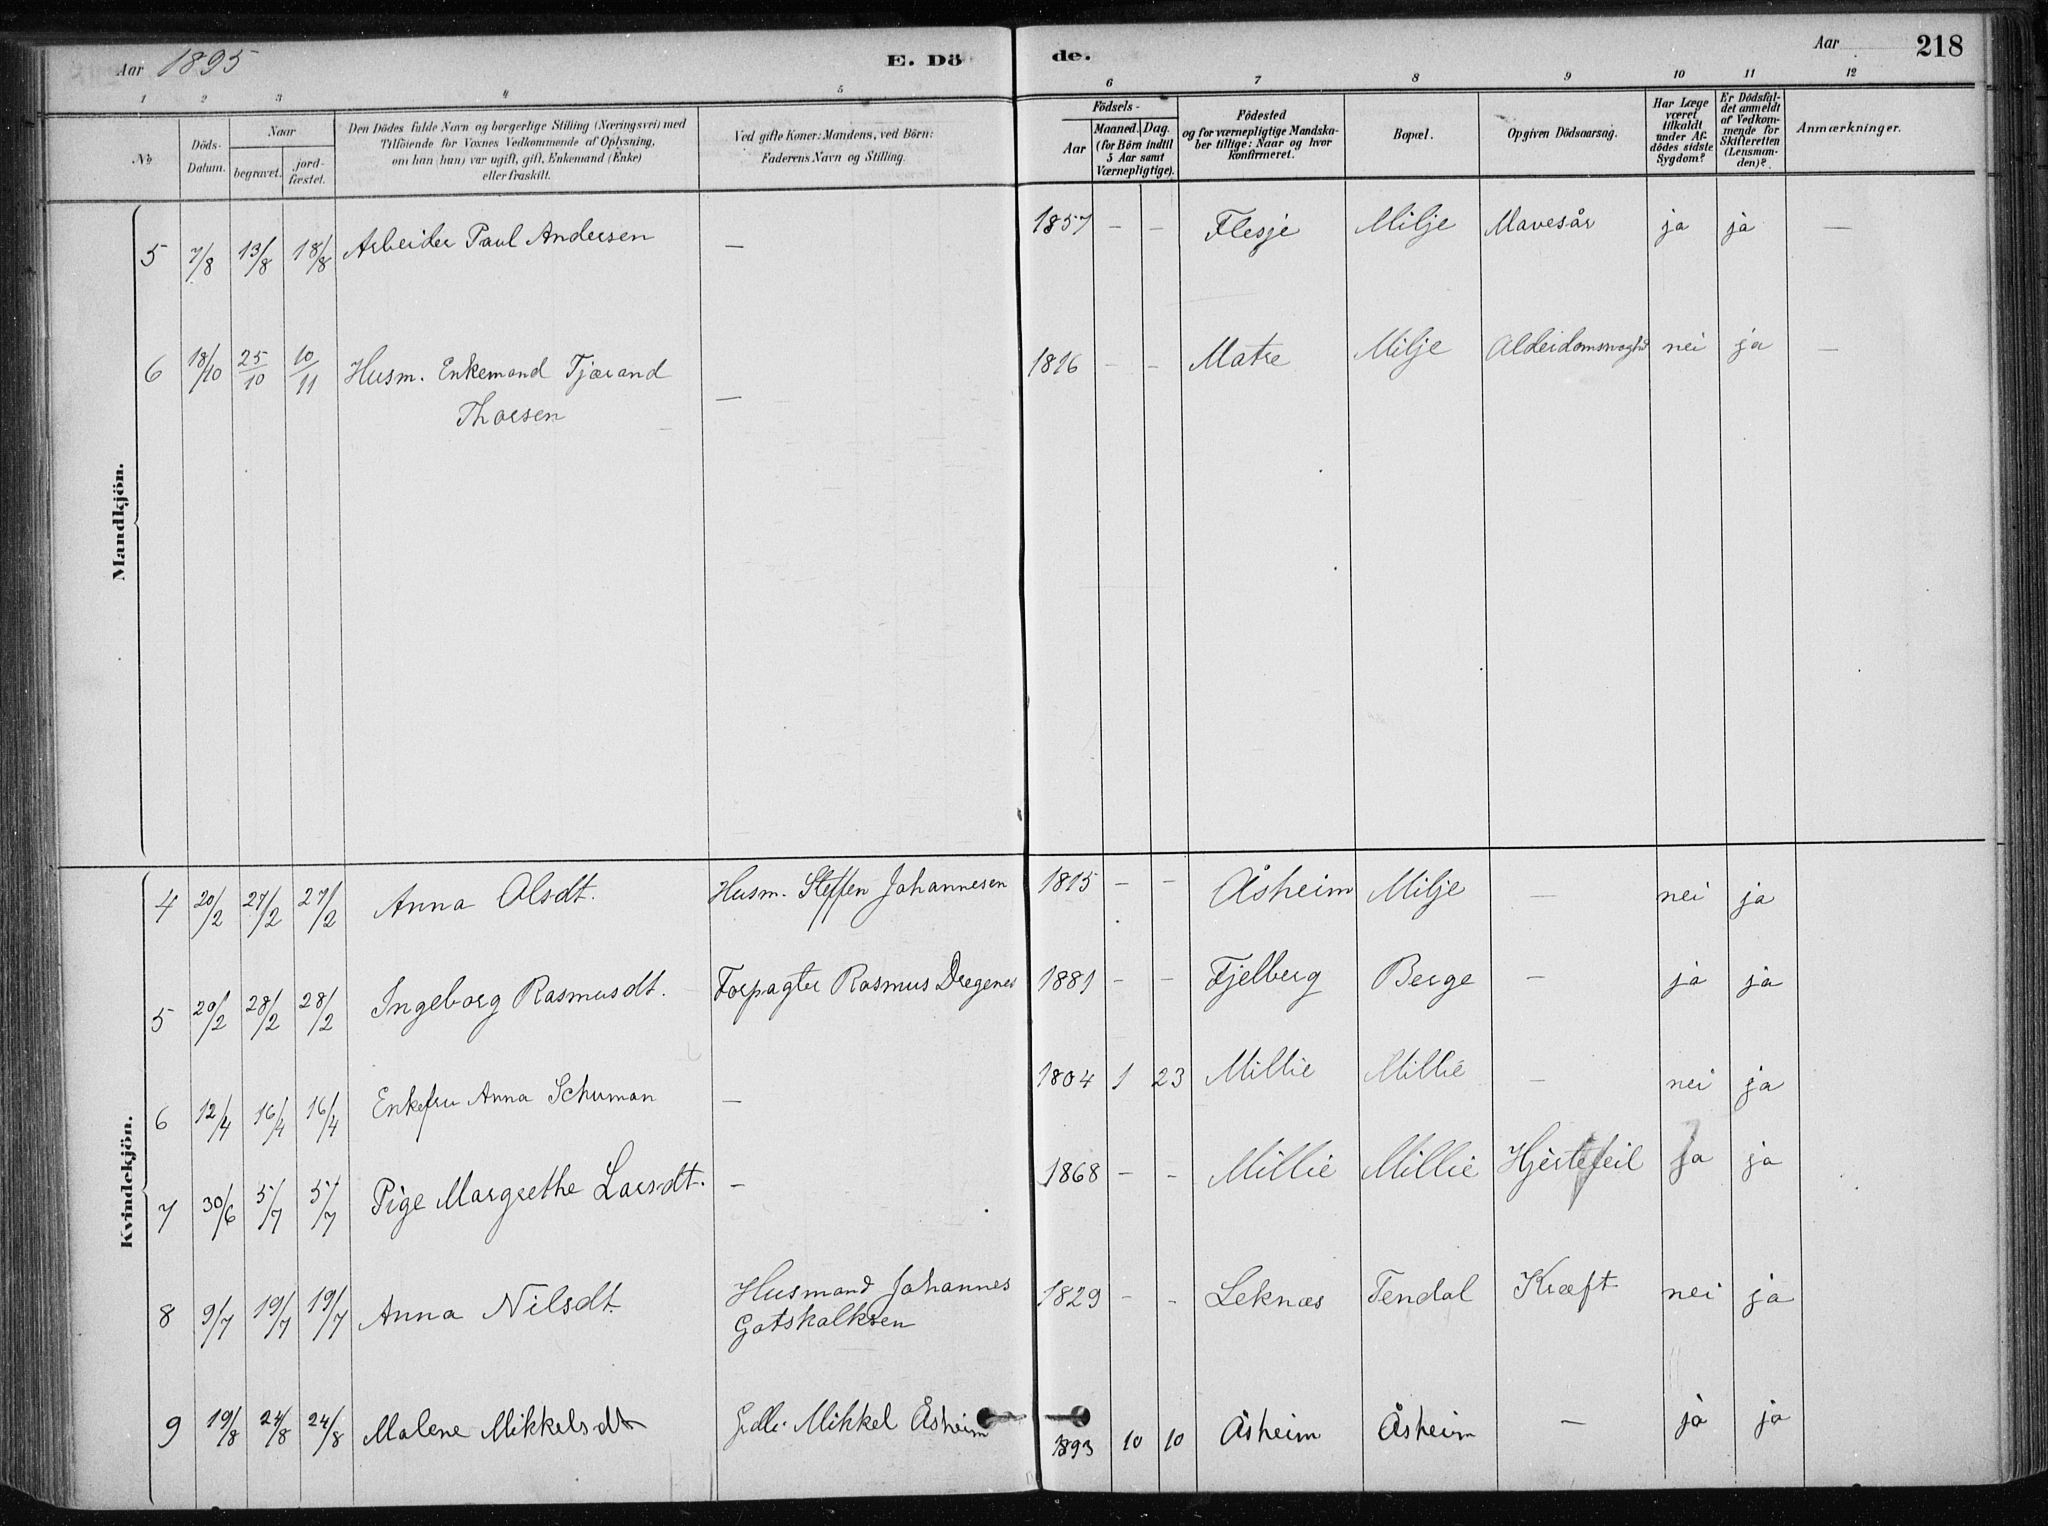 Aar 1895 E. Dö de. Aar 218
1 2 3 4 5 6 7 8 9 10 11 12
No
Döds-
Datum.
Naar
begravet.
jord-
fæstet.
Den Dödes fulde Navn og borgerlige Stilling (Næringsvei) med
Tilföiende for Voxnes Vedkommende af Oplysning,
om han (hun) var ugift, gift, Enkemand (Enke)
eller fraskilt.
Ved gifte Koner: Mandens, ved Börn:
Faderens Navn og Stilling.
Födsels-
Aar
Maaned. Dag.
(for Börn indtil
5 Aar samt
Værnepligtige).
Födested
og for værnepligtige Mandska-
ber tillige: Naar og hvor
konfirmeret.
Bopæl.
Opgiven Dödsaarsag.
Har Læge
været
tilkaldt
under Af-
dödes sidste
Sygdom?
Er Dödsfal-
det anmeldt
af Vedkom-
mende for
Skifteretten
(Lensman-
den)?
Anmærkninger.
Mandkjön.
5 7/8 13/8 18/8 Arbeider Paul Andersen — 1857 - - Flesje Milje Mavesår ja ja —
6 18/10 25/10 10/11 Husm. Enkemand Tjærand — 1816 - - Matre Milje nei ja —
Thorsen
Kvindekjön.
4 20/2 27/2 27/2 Anna Olsdt. Husm. Steffen Johannesen 1815 - - Åsheim Milje — nei ja
5 20/2 28/2 28/2 Ingeborg Rasmusdt. Forpagter Rasmus Dregenes 1881 - - Fjelberg Berge — ja ja
6 12/4 16/4 16/4 Enkefru Anna Schuman — 1804 1 23 Millie Millie — nei ja
7 30/6 5/7 5/7 Pige Margrethe Larsdt. — 1868 - - Millie Millie Hjertefeil ja ja
8 9/7 19/7 19/7 Anna Nilsdt. Husmand Johannes 1829 - - Leknæs Tendal Kræft nei ja
Gotskalksen
9 19/8 24/8 24/8 Malene Mikkelsdt Mikkel Åsheim 1893 10 10 Åsheim Åsheim — ja ja